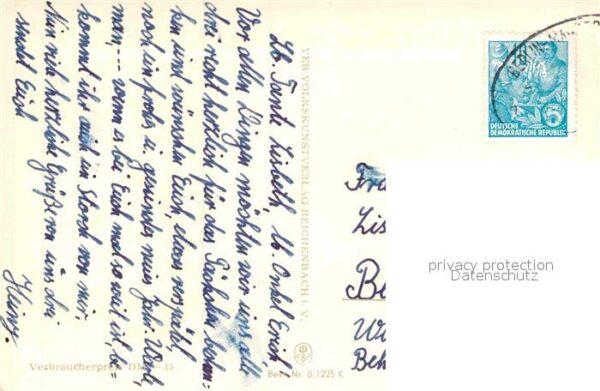 Lb. Tante Lisbeth, lb. Onkel Erich,
Vor allen Dingen möchten wir uns alle
drei recht herzlich für das Päckchen bedan-
ken und wünschen Euch, etwas verspätet
noch ein frohes u. gesundes neues Jahr. Wartet
man, -- wenn es bei Euch mal so weit ist, be-
kommt ihr auch ein Storch von mir.
Nun viele herzliche Grüße von uns drei
sendet Euch
Heinz.
VEB VOLKSKUNSTVERLAG REICHENBACH I. V.
Verbraucherpreis DM -.15
Best. Nr. B 1225 K
BERLIN
DEUTSCHE
DEMOKRATISCHE REPUBLIK
5
Fra
Lis
Be
Beh
privacy protection
Datenschutz